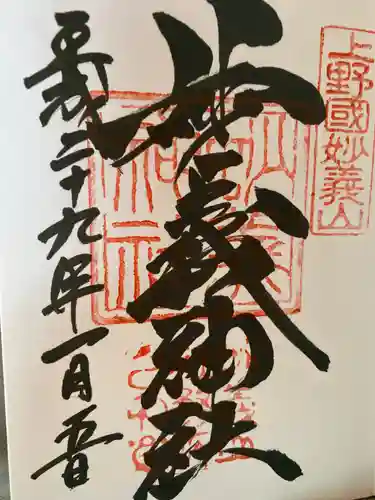 上野國妙義山
妙義神社
平成二十九年一月吉日